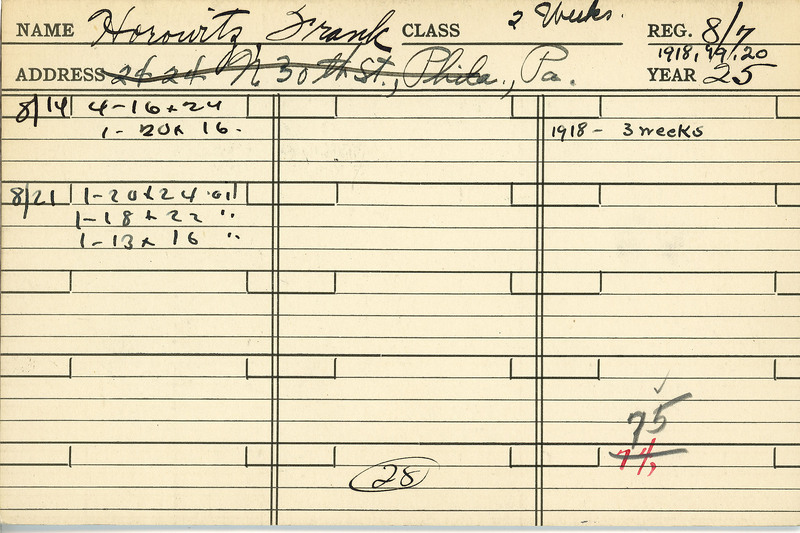 NAME Horowitz Frank CLASS 2 Weeks. REG. 8/7
1918, 19, 20
ADDRESS 2424 N 30th St., Phila., Pa. YEAR 25
8/14 4-16x24
1-20x16.
1918 - 3 weeks
8/21 1-20x24 oil
1-18x22 "
1-13x16 "
75
28